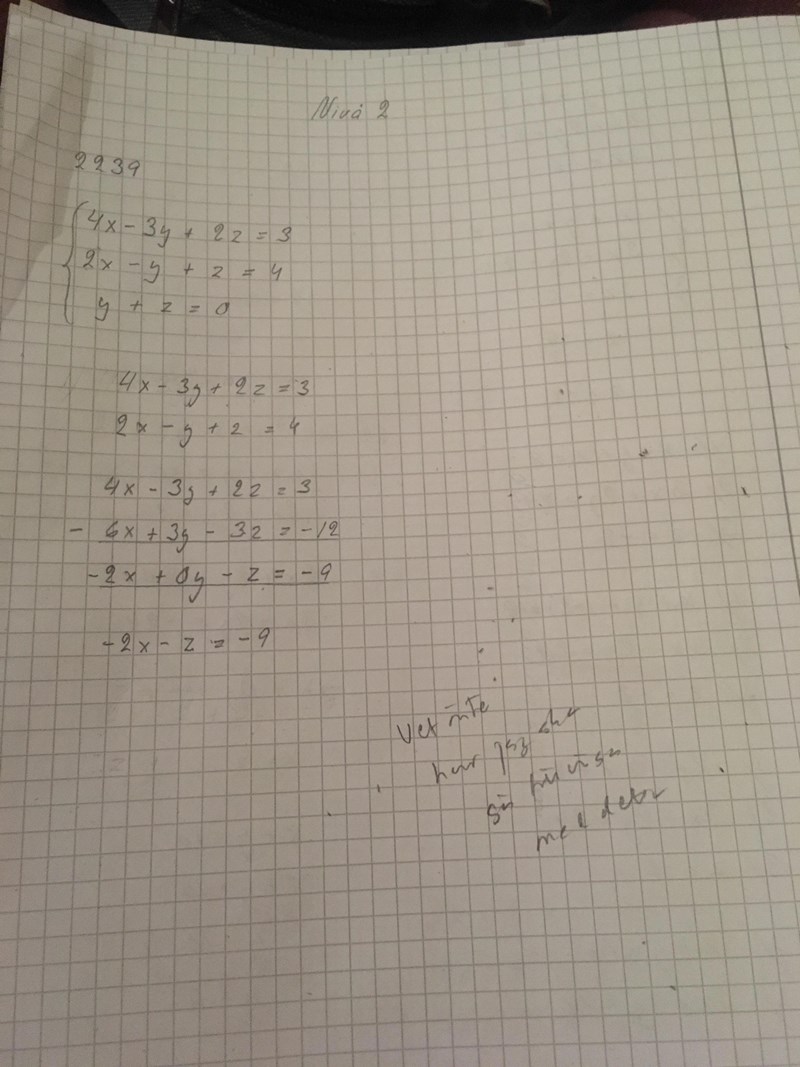 Nivå 2
2239
4x - 3y + 2z = 3
2x - y + z = 4
y + z = 0
4x - 3y + 2z = 3
2x - y + z = 4
4x - 3y + 2z = 3
- 6x + 3y - 3z = -12
-2x + 0y - z = -9
-2x - z = -9
Vet inte
hur jag ska
med detta